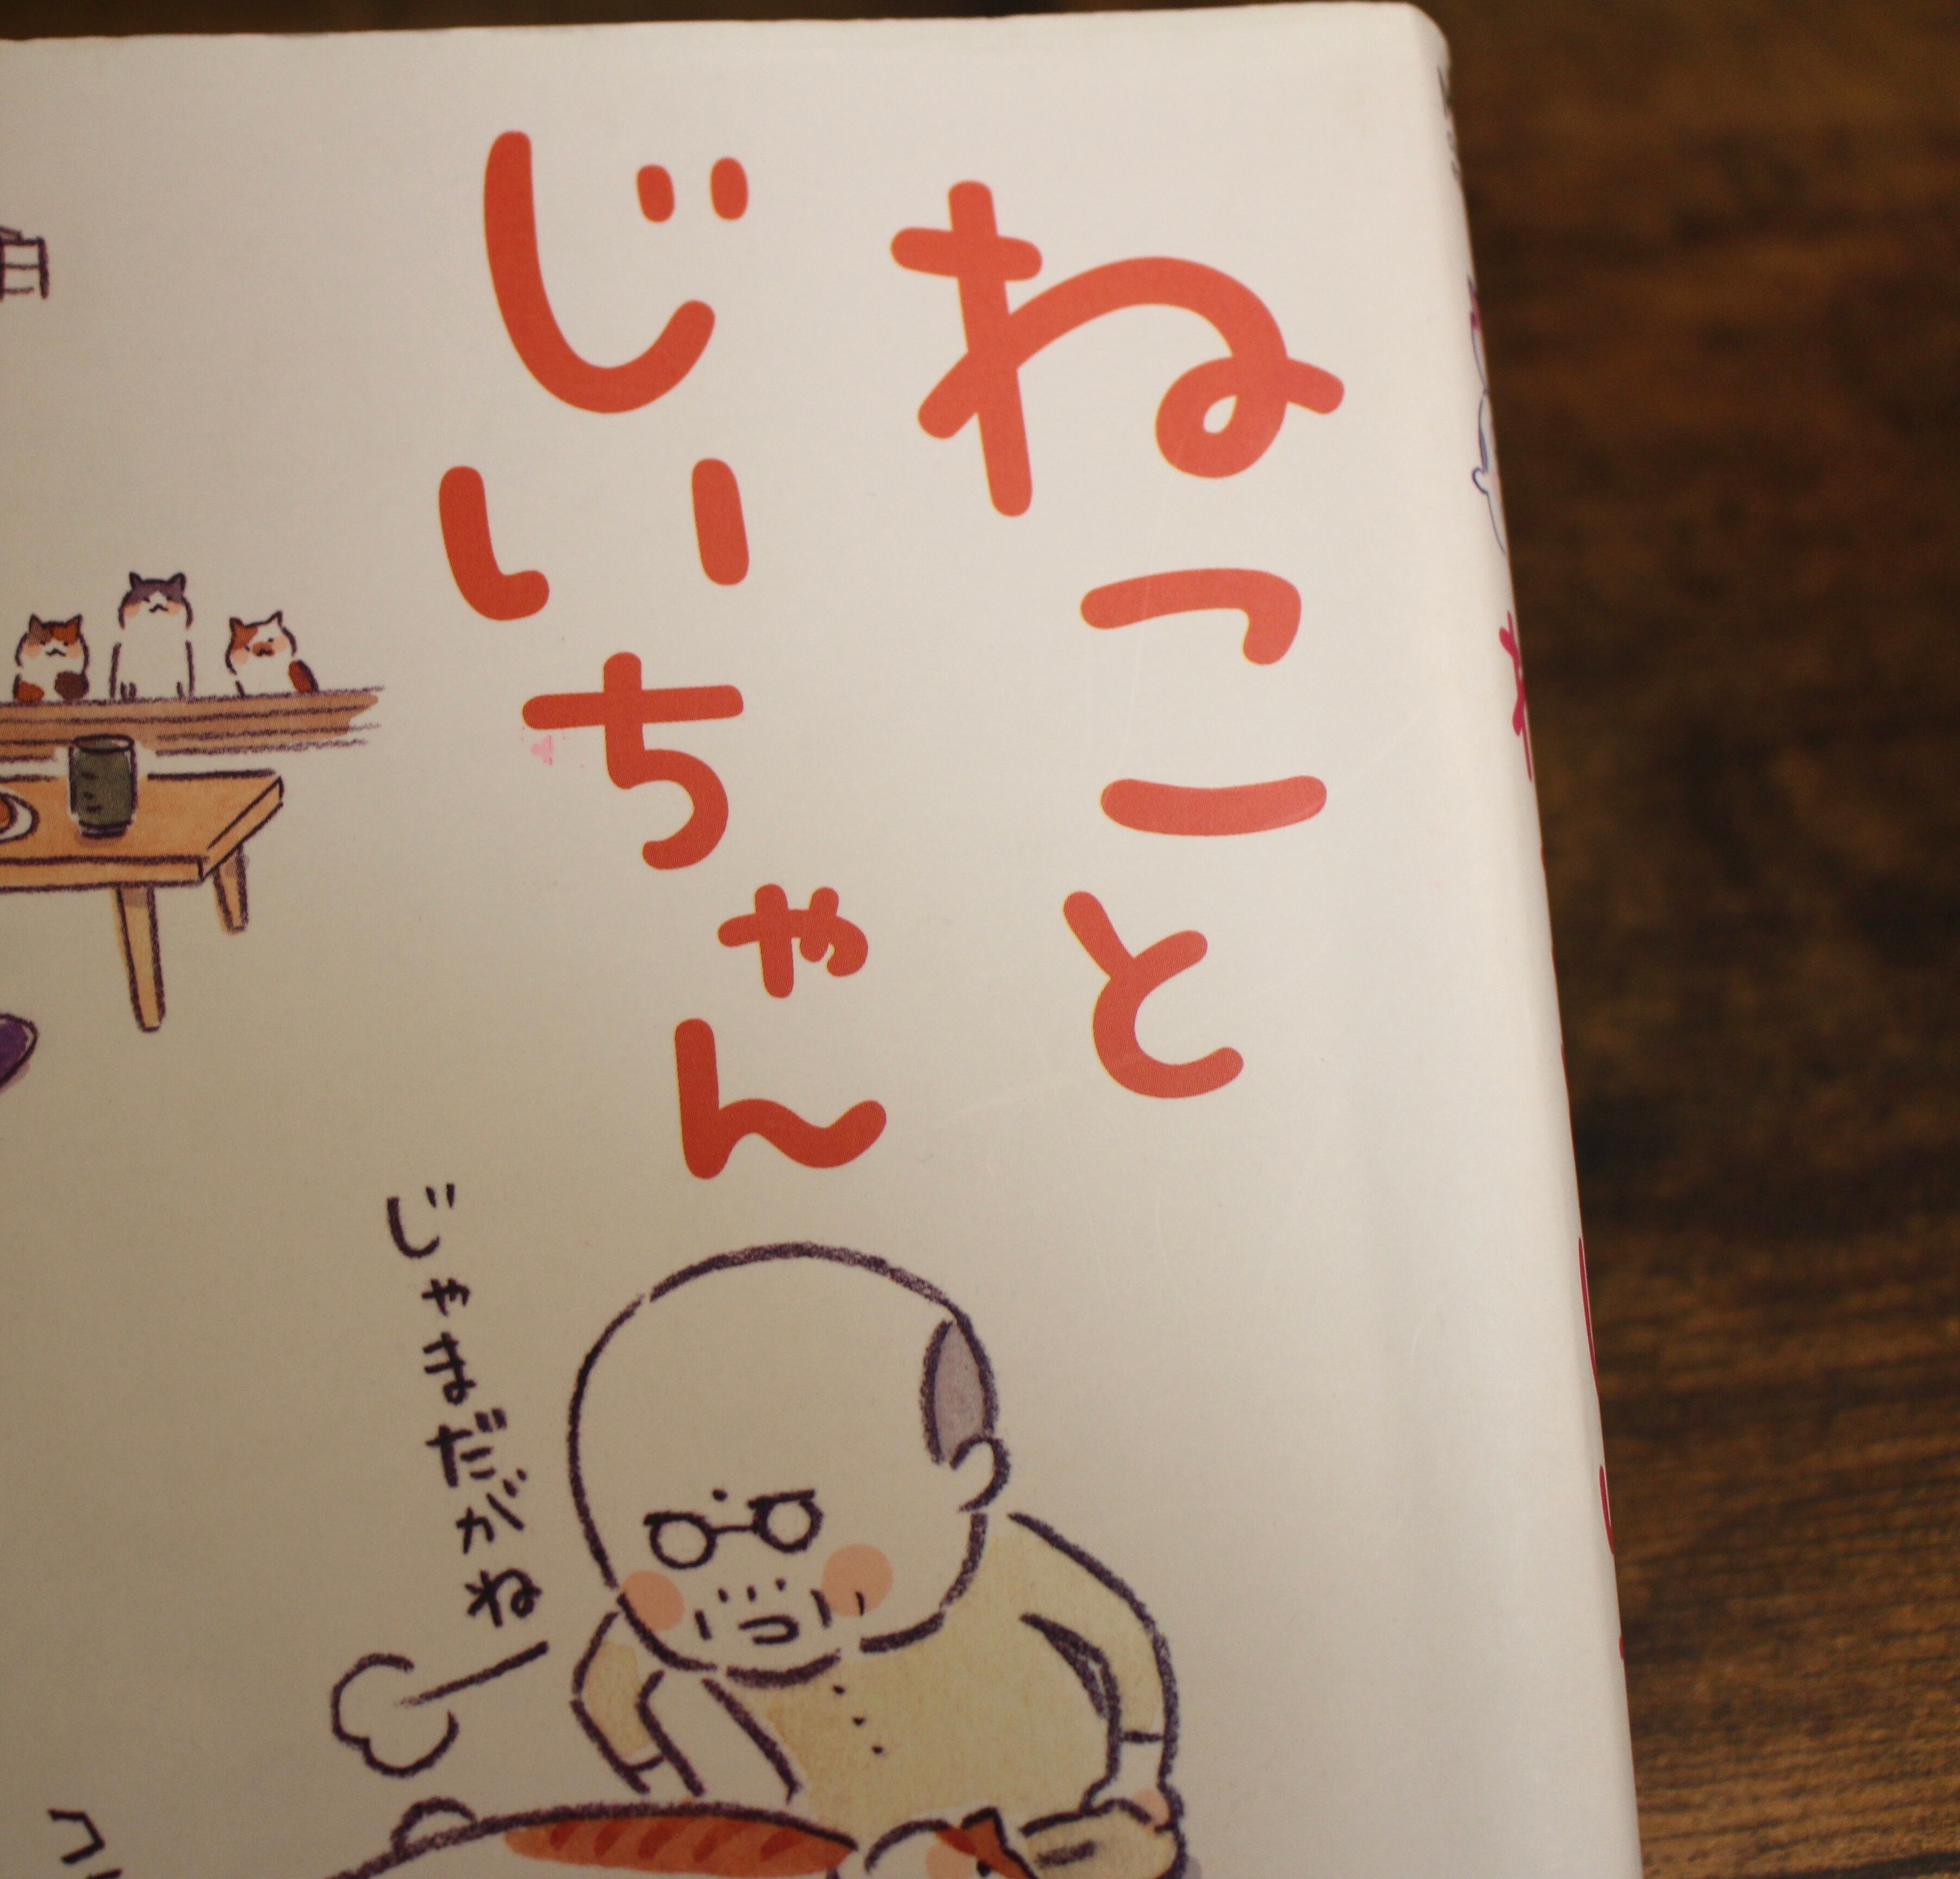 ねこと
じいちゃん
じゃまだがね